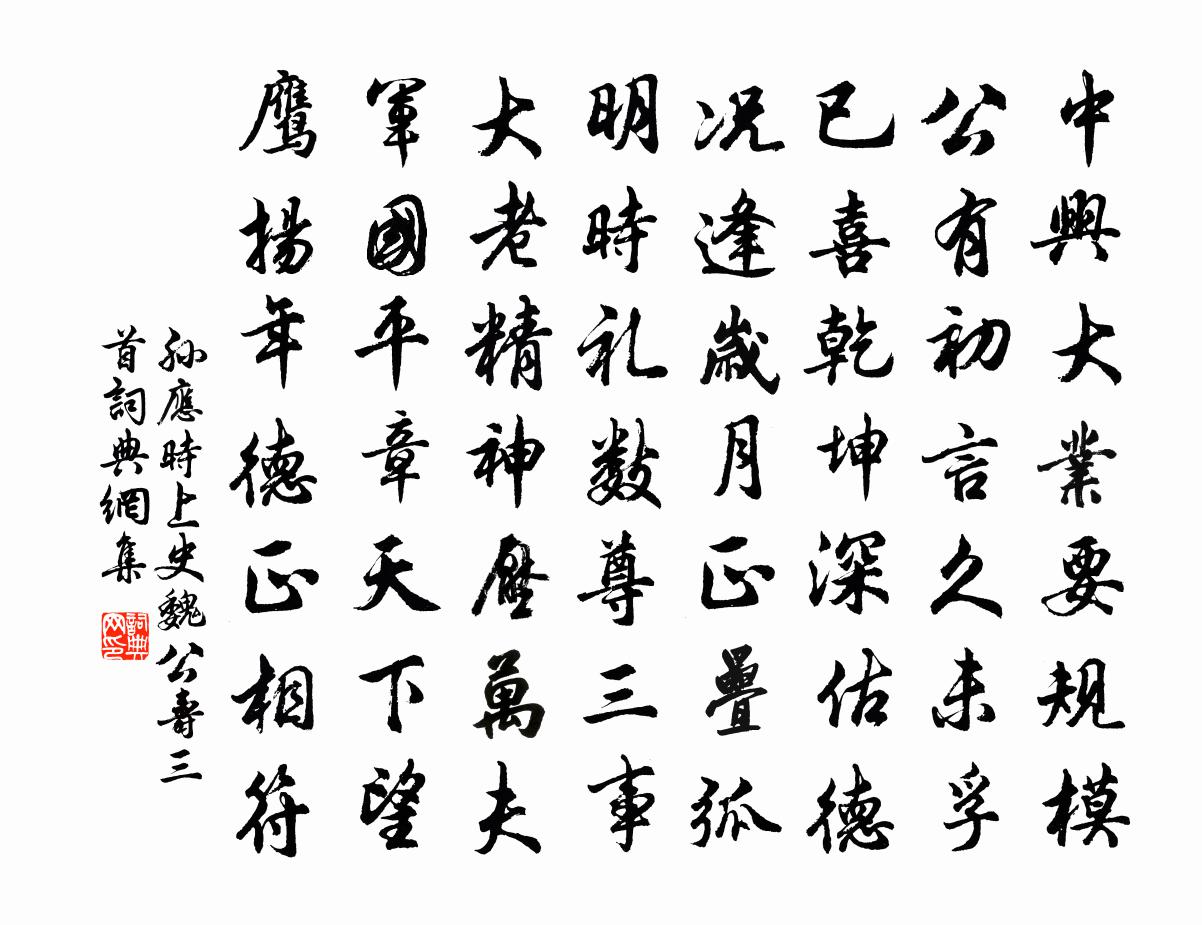 中興大業要規模
公有初言久未孚
已喜乾坤深佑德
况逢歲月正疊弧
明時礼數尊三事
大老精神壓萬夫
軍國平章天下望
鷹揚年德正相符
孫應時上史魏公壽三
首詞典網集
詞典
网印